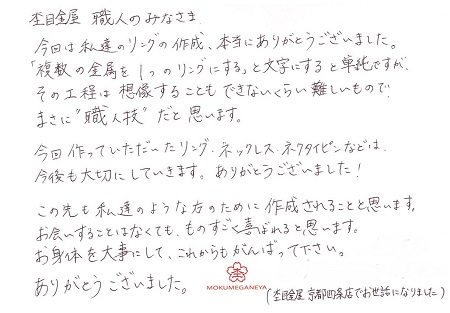 杢目金屋 職人のみなさま
今回は私達のリングの作成、本当にありがとうございました。
「複数の金属を1つのリングにする」と文字にすると単純ですが、
その工程は想像することもできないくらい難しいもので、
まさに"職人技"だと思います。
今回作っていただいたリング・ネックレス・ネクタイピンなどは、
今後も大切にしていきます。ありがとうございました！
この先も私達のような方のために作成されることと思います。
お会いすることはなくても、ものすごく喜ばれると思います。
お身体を大事にして、これからもがんばって下さい。
ありがとうございました。
MOKUMEGANEYA
(杢目金屋 京都四条店でお世話になりました)